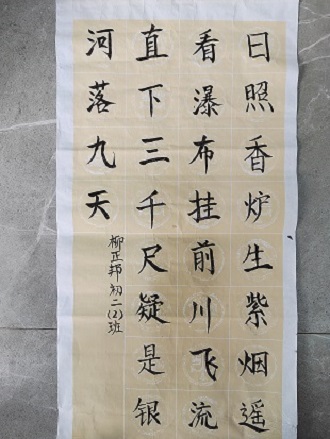 日照香炉生紫烟遥
看瀑布挂前川飞流
直下三千尺疑是银
河落九天
柳正邦初二(2)班